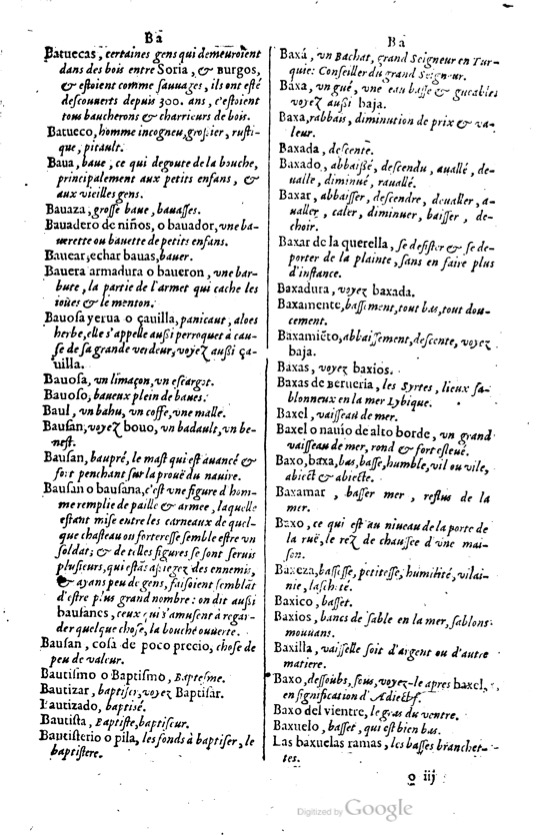 Ba
Batuecas, certaines gens qui demeuroient
dans des bois entre Soria, & Burgos,
& estoient comme sauuages, ils ont esté
descouuerts depuis 300. ans, c'estoient
tous baucherons & charrieurs de bois.
Batueco, homme incogneu, grossier, rusti-
que, pitault.
Baua, baue, ce qui degoute de la bouche,
principalement aux petits enfans, &
aux vieilles gens.
Bauaza, grosse baue, bauasses.
Bauadero de niños, o bauador, vne ba-
uerette ou bauette de petits enfans.
Bauear, echar bauas, bauer.
Bauera armadura o baueron, vne bar-
bute, la partie de l'armet qui cache les
ioües & le menton.
Bauosa yerua o çauilla, panicaut, aloes
herbe, elle s'appelle aussi perroquet à cau-
se de sa grande verdeur, voyez aussi ça-
uilla.
Bauosa, vn limaçon, vn escargot.
Bauoso, baueux plein de baues.
Baul, vn bahu, vn coffre, vne malle.
Bausan, voyez bouo, vn badault, vn be-
nest.
Bausan, baupré, le mast qui est auancé &
fort penchant sur la prouë du nauire.
Bausan o bausana, c'est vne figure d'hom-
me remplie de paille & armee, laquelle
estant mise entre les carneaux de quel-
que chasteau ou forteresse semble estre vn
soldat; & de telles figures se sont seruis
plusieurs, qui estãs assiegez des ennemis,
& ayans peu de gens, faisoient semblãt
d'estre plus grand nombre: on dit aussi
bausanes, ceux qui s'amusent à regar-
der quelque chose, la bouche ouuerte.
Bausan, cosa de poco precio, chose de
peu de valeur.
Bautismo o Baptismo, Baptesme.
Bautizar, baptiser, voyez Baptisar.
Bautizado, baptisé.
Bautista, Baptiste, baptiseur.
Bautisterio o pila, les fonds à baptiser, le
baptistere.
Ba
Baxá, vn Bachat, grand Seigneur en Tur-
quie: Conseiller du grand Seigneur.
Baxa, vn gué, vne eau basse & gueable,
voyez aussi baja.
Baxa, rabbais, diminution de prix & va-
leur.
Baxada, descente.
Baxado, abbaissé, descendu, auallé, de-
ualle, diminué, rauallé.
Baxar, abbaisser, descendre, deualler, a-
ualler, caler, diminuer, baisser, de-
choir.
Baxar de la querella, se desister & se de-
porter de la plainte, sans en faire plus
d'instance.
Baxadura, voyez baxada.
Baxamente, bassement, tout bas, tout dou-
cement.
Baxamiẽto, abbaissement, descente, voyez
baja.
Baxas, voyez baxios.
Baxas de Berueria, les Syrtes, lieux sa-
blonneux en la mer Lybique.
Baxel, vaisseau de mer.
Baxel o nauio de alto borde, vn grand
vaisseau de mer, rond & fort esleué.
Baxo, baxa, bas, basse, humble, vil ou vile,
abiect & abiecte.
Baxamar, basser mer, reflus de la
mer.
Baxo, ce qui est au niueau de la porte de
la ruë, le rez de chaussee d'vne mai-
son.
Baxeza, bassesse, petitesse, humilité, vilai-
nie, lascheté.
Baxico, basset.
Baxios, bancs de sable en la mer, sablons
mouuans.
Baxilla, vaisselle soit d'argent ou d'autre
matiere.
Baxo, dessoubs, sous, voyez-le apres baxel,
en signification d'Adiectif.
Baxo del vientre, le gras du ventre.
Baxuelo, basset, qui est bien bas.
Las baxuelas ramas, les basses branchet-
tes.
o iij
Digitized by Google